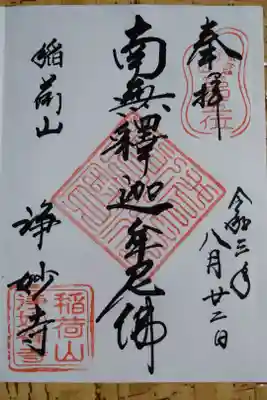 奉拝
令和三年
八月廿二日
南無釋迦牟尼佛
稲荷山
淨妙寺
稲荷山
淨妙寺